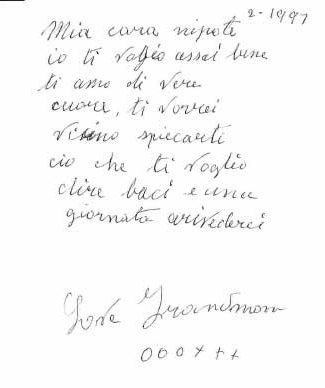 2-1997
Mia cara nipote
io ti voglio assai bene
ti amo di vere
cuore, ti vorrei
vicino spiecarti
ciò che ti voglio
dire baci e una
giornata arivederci
Love Grandmom
000xxx